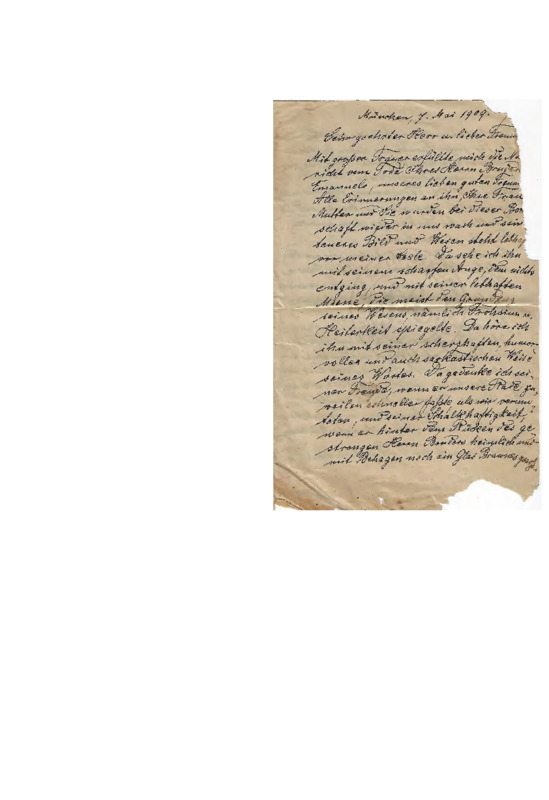 München, 7. Mai 1909.
Sehr geehrter Herr u. lieber Freund
Mit großer Trauer erfüllte mich die Na
richt vom Tode Ihres Herrn Bruders
Emanuels, unseres lieben guten Freun
Alle Erinnerungen an ihn, Ihre Frau
Mutter und Sie wurden bei dieser Bot
schaft wieder in uns wach und sein
teueres Bild und Wesen steht lebhaft
vor meiner Seele. Da sehe ich ihn
mit seinem scharfen Auge, dem nichts
entging, und mit seiner lebhaften
Miene, die meist den Grundzug
seines Wesens, nämlich Frohsinn u.
Heiterkeit spiegelte. Da höre ich
ihn mit seiner scherzhaften, humor-
vollen und auch sarkastischen Weise
seines Wortes. Da gedenke ich sei-
ner Freude, wenn er unsere Rede zu-
weilen schneller faßte als wir vermu
teten, und seiner Schalkhaftigkeit,
wenn er hinter dem Rücken des ge
strengen Herrn Bruders heimlich und
mit Behagen noch ein Glas Braunes